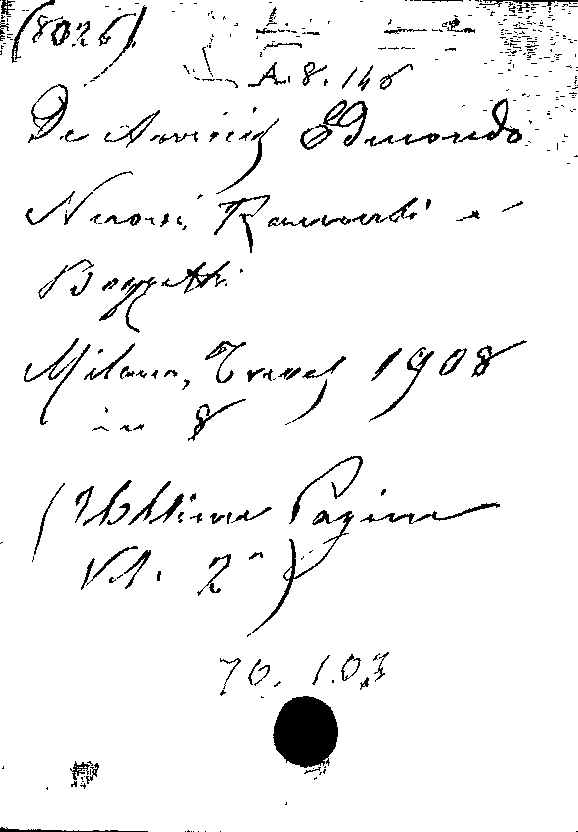 (8026)
A. 8. 146
De Amicis Edmondo
Nuovi Racconti e
Bozzetti
Milano, Treves 1908
in 8
(Ultime Pagine
Vol. 2°)
70. 1.03